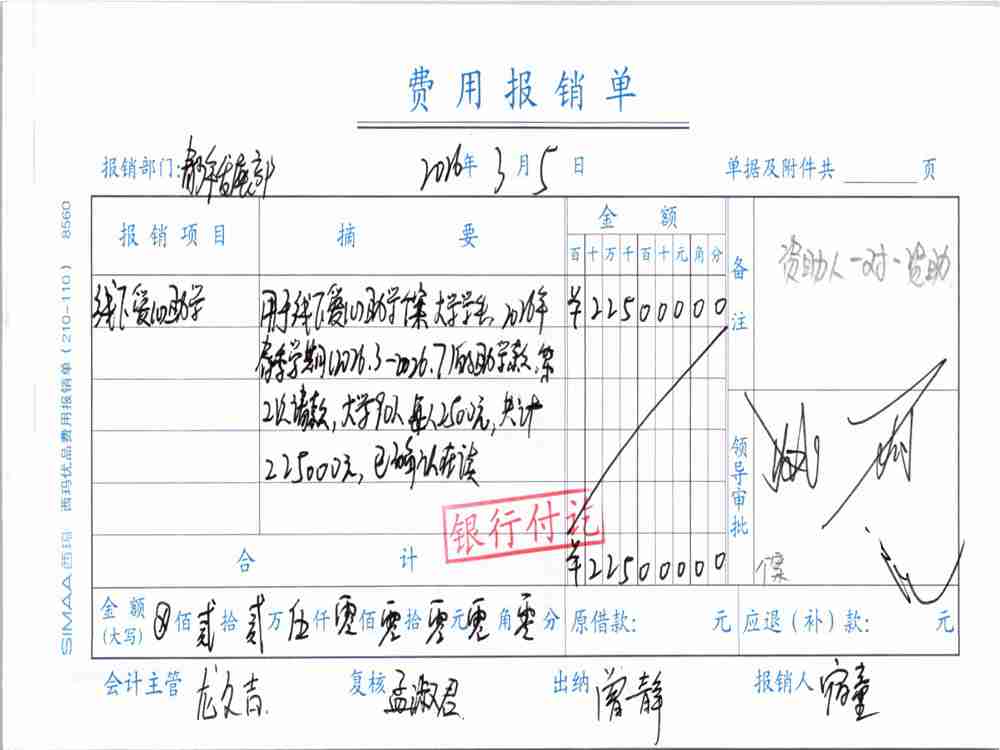 费用报销单
报销部门: 青年发展部 2026年 3月 5日 单据及附件共 页
报销项目 摘要 金额 备注
百十万千百十元角分
资助人一对一资助
线下爱心助学 用于线下爱心助学个案大学学生, 2026年 ¥22500000
春季学期(2026.3-2026.7)的助学款, 第
2次请款, 大学90人每人2500元, 共计
225000元, 已确认在读
领导审批
银行付讫
合计 ¥22500000
个案
金额(大写) ⊗佰贰拾贰万伍仟零佰零拾零元零角零分 原借款: 元 应退(补)款: 元
会计主管 龙文吉 复核 孟淑君 出纳 曾静 报销人 宿童
SIMAA西玛 西玛优品费用报销单(210-110) 8560